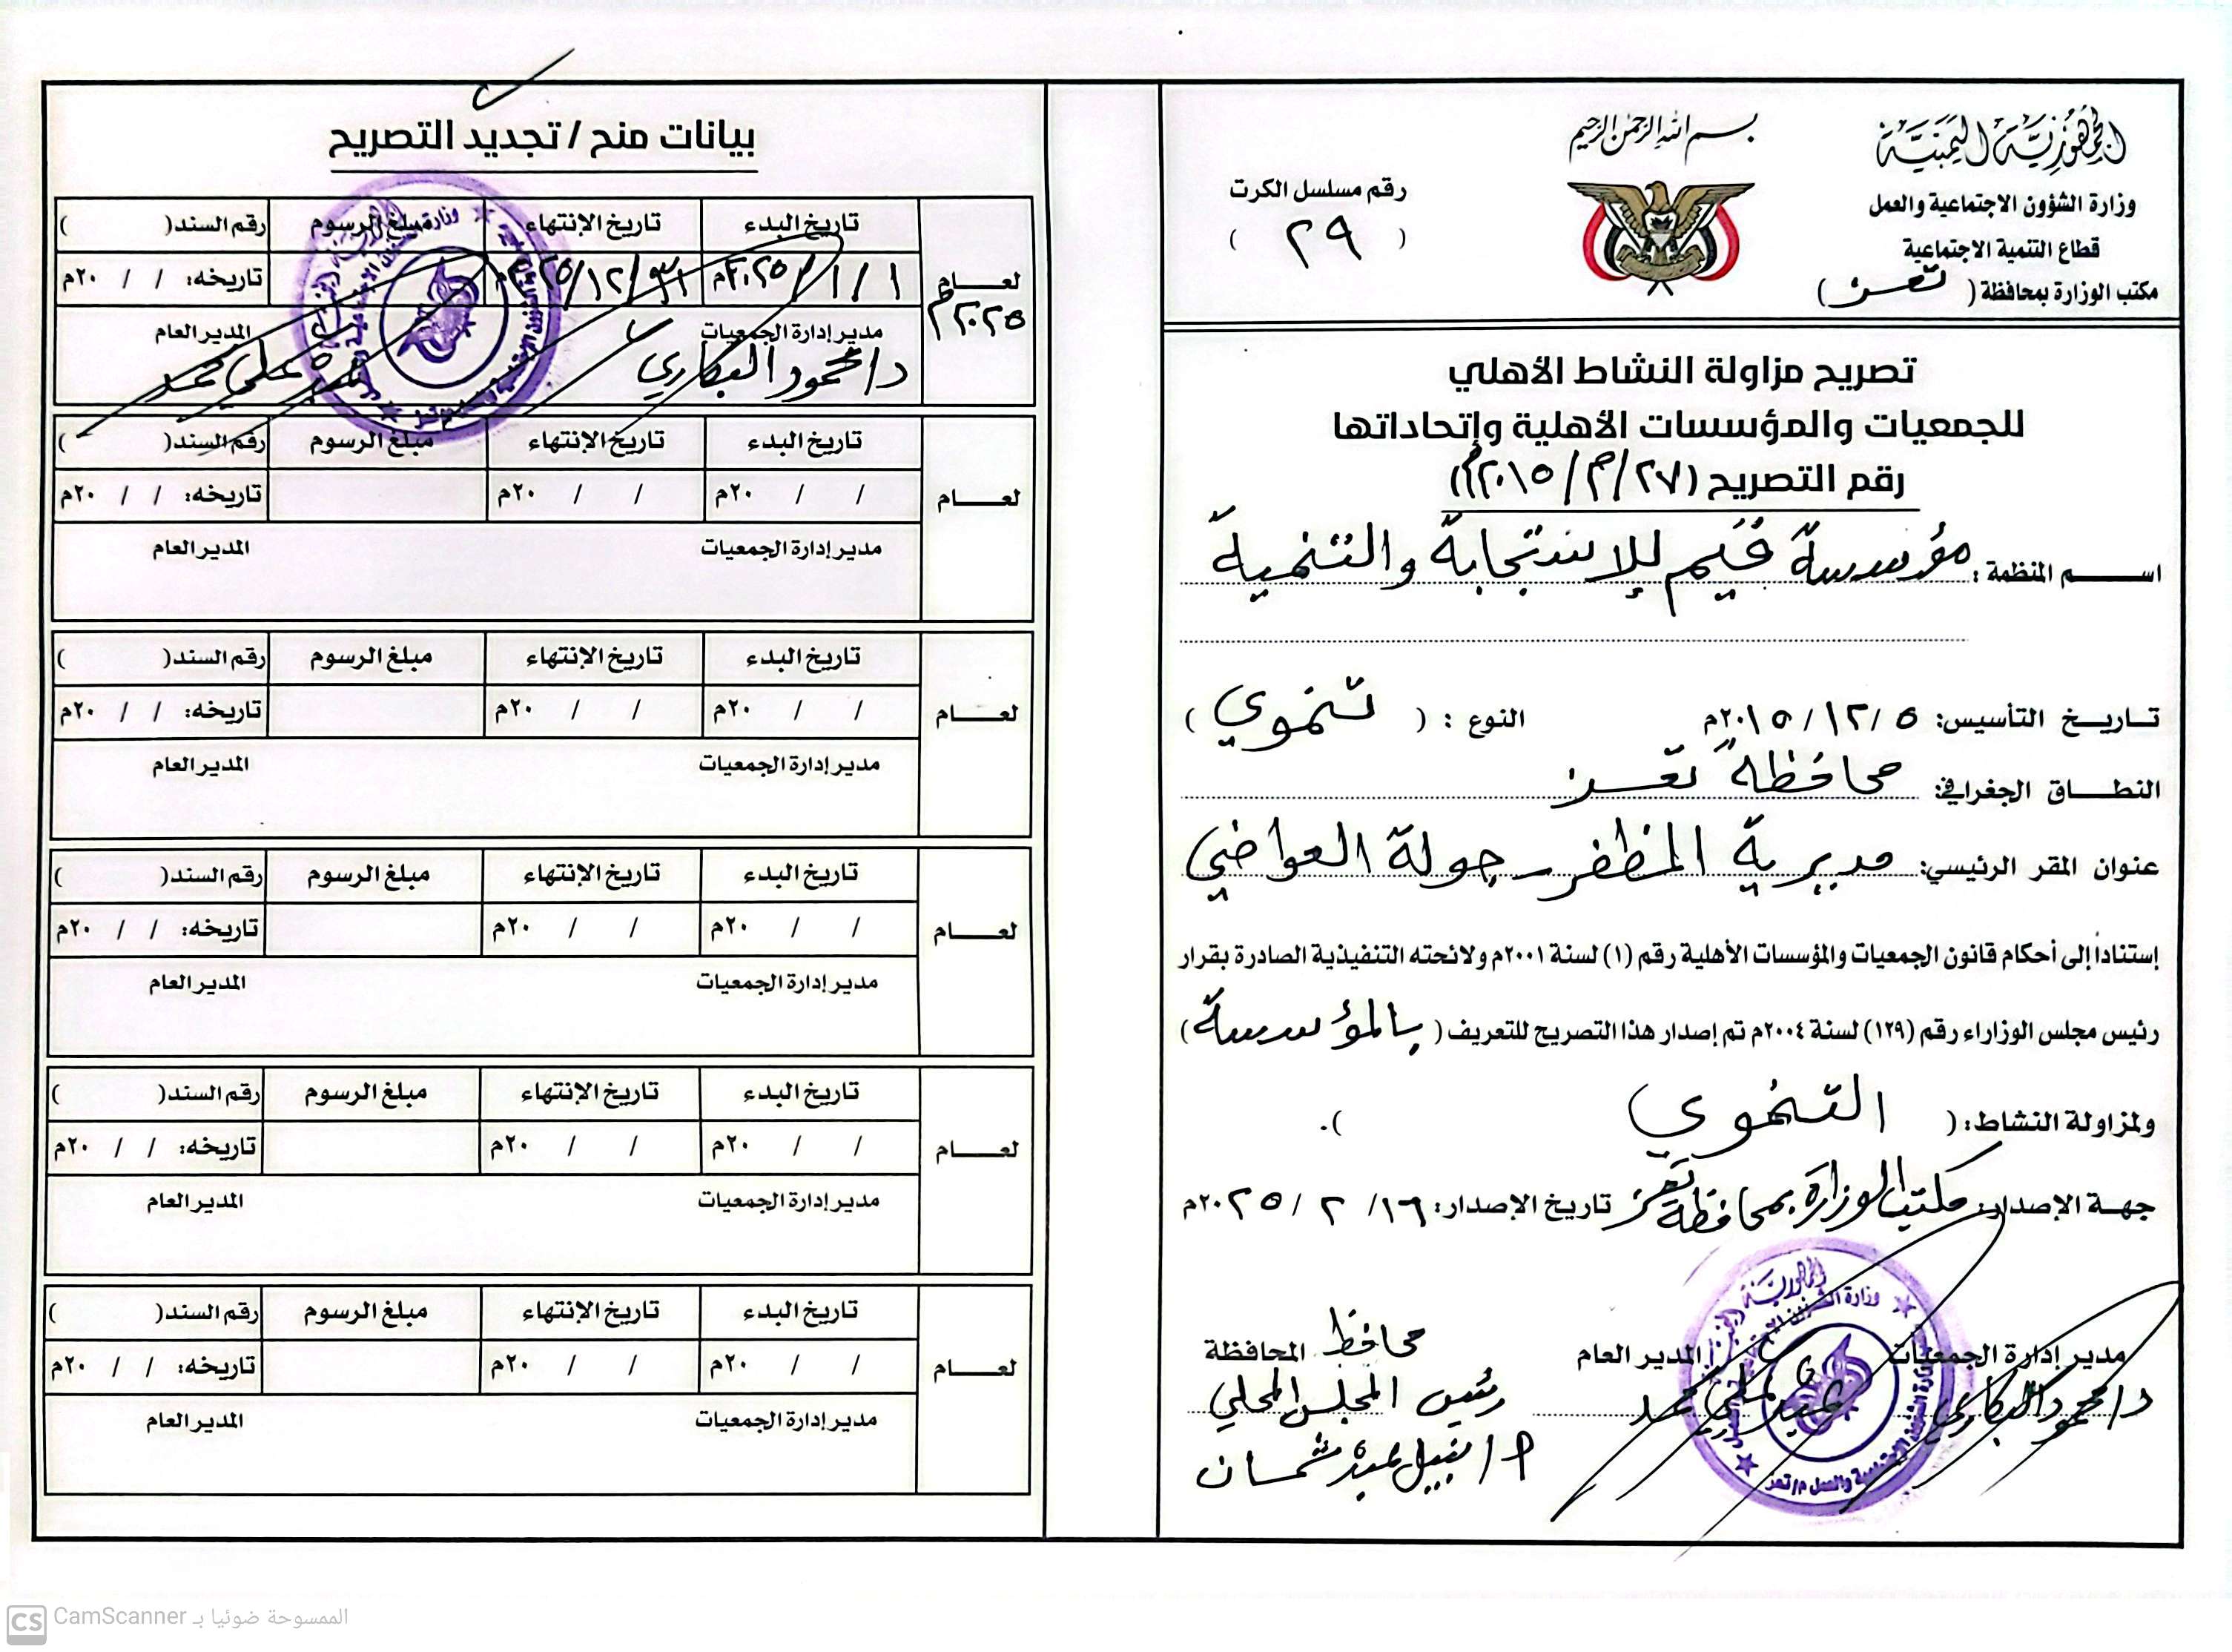 الجمهورية اليمنية
وزارة الشؤون الاجتماعية والعمل
قطاع التنمية الاجتماعية
مكتب الوزارة بمحافظة ( تعز )
بسم الله الرحمن الرحيم
رقم مسلسل الكرت
( ٢٩ )
تصريح مزاولة النشاط الأهلي
للجمعيات والمؤسسات الأهلية وإتحاداتها
رقم التصريح (٢٧/م/٢٠١٥م)
اسم المنظمة: مؤسسة قيم للإستجابة والتنمية
تاريخ التأسيس: ٥/ ١٢/ ٢٠١٥م النوع : ( تنموي )
النطاق الجغرافي: محافظة تعز
عنوان المقر الرئيسي: مديرية المظفر - جولة العواضي
إستناداً إلى أحكام قانون الجمعيات والمؤسسات الأهلية رقم (١) لسنة ٢٠٠١م ولائحته التنفيذية الصادرة بقرار
رئيس مجلس الوزاراء رقم (١٢٩) لسنة ٢٠٠٤م تم إصدار هذا التصريح للتعريف ( بالمؤسسة )
ولمزاولة النشاط: ( التنموي ).
جهة الإصدار: مكتب الوزارة بمحافظة تعز تاريخ الإصدار: ١٦/ ٢ / ٢٠٢٥م
مدير إدارة الجمعيات المدير العام محافظ المحافظة
د/محمود البكاري علي محمد رئيس المجلس المحلي
أ/ نبيل عبده شمسان
بيانات منح / تجديد التصريح
لعام ٢٠٢٥م تاريخ البدء تاريخ الإنتهاء مبلغ الرسوم رقم السند( )
١ / ١ / ٢٠٢٥م ٣١/ ١٢/ ٢٠٢٥م تاريخه: / / ٢٠م
مدير إدارة الجمعيات المدير العام
د/محمود البكاري علي محمد
لعام تاريخ البدء تاريخ الإنتهاء مبلغ الرسوم رقم السند( )
/ / ٢٠م / / ٢٠م تاريخه: / / ٢٠م
مدير إدارة الجمعيات المدير العام
لعام تاريخ البدء تاريخ الإنتهاء مبلغ الرسوم رقم السند( )
/ / ٢٠م / / ٢٠م تاريخه: / / ٢٠م
مدير إدارة الجمعيات المدير العام
لعام تاريخ البدء تاريخ الإنتهاء مبلغ الرسوم رقم السند( )
/ / ٢٠م / / ٢٠م تاريخه: / / ٢٠م
مدير إدارة الجمعيات المدير العام
لعام تاريخ البدء تاريخ الإنتهاء مبلغ الرسوم رقم السند( )
/ / ٢٠م / / ٢٠م تاريخه: / / ٢٠م
مدير إدارة الجمعيات المدير العام
لعام تاريخ البدء تاريخ الإنتهاء مبلغ الرسوم رقم السند( )
/ / ٢٠م / / ٢٠م تاريخه: / / ٢٠م
مدير إدارة الجمعيات المدير العام
CS الممسوحة ضوئيا بـ CamScanner